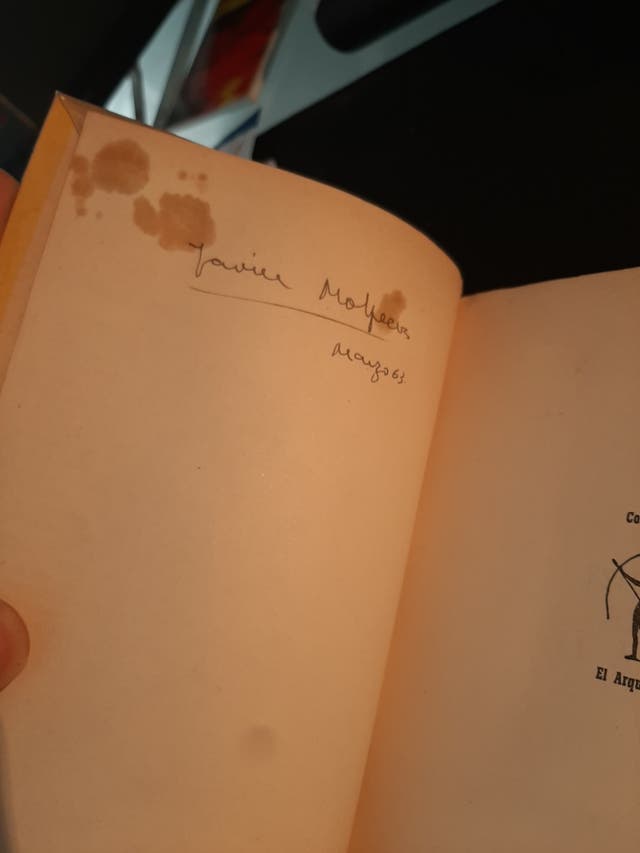 Javier Malpecas
Marzo 63
Co
El Arqu